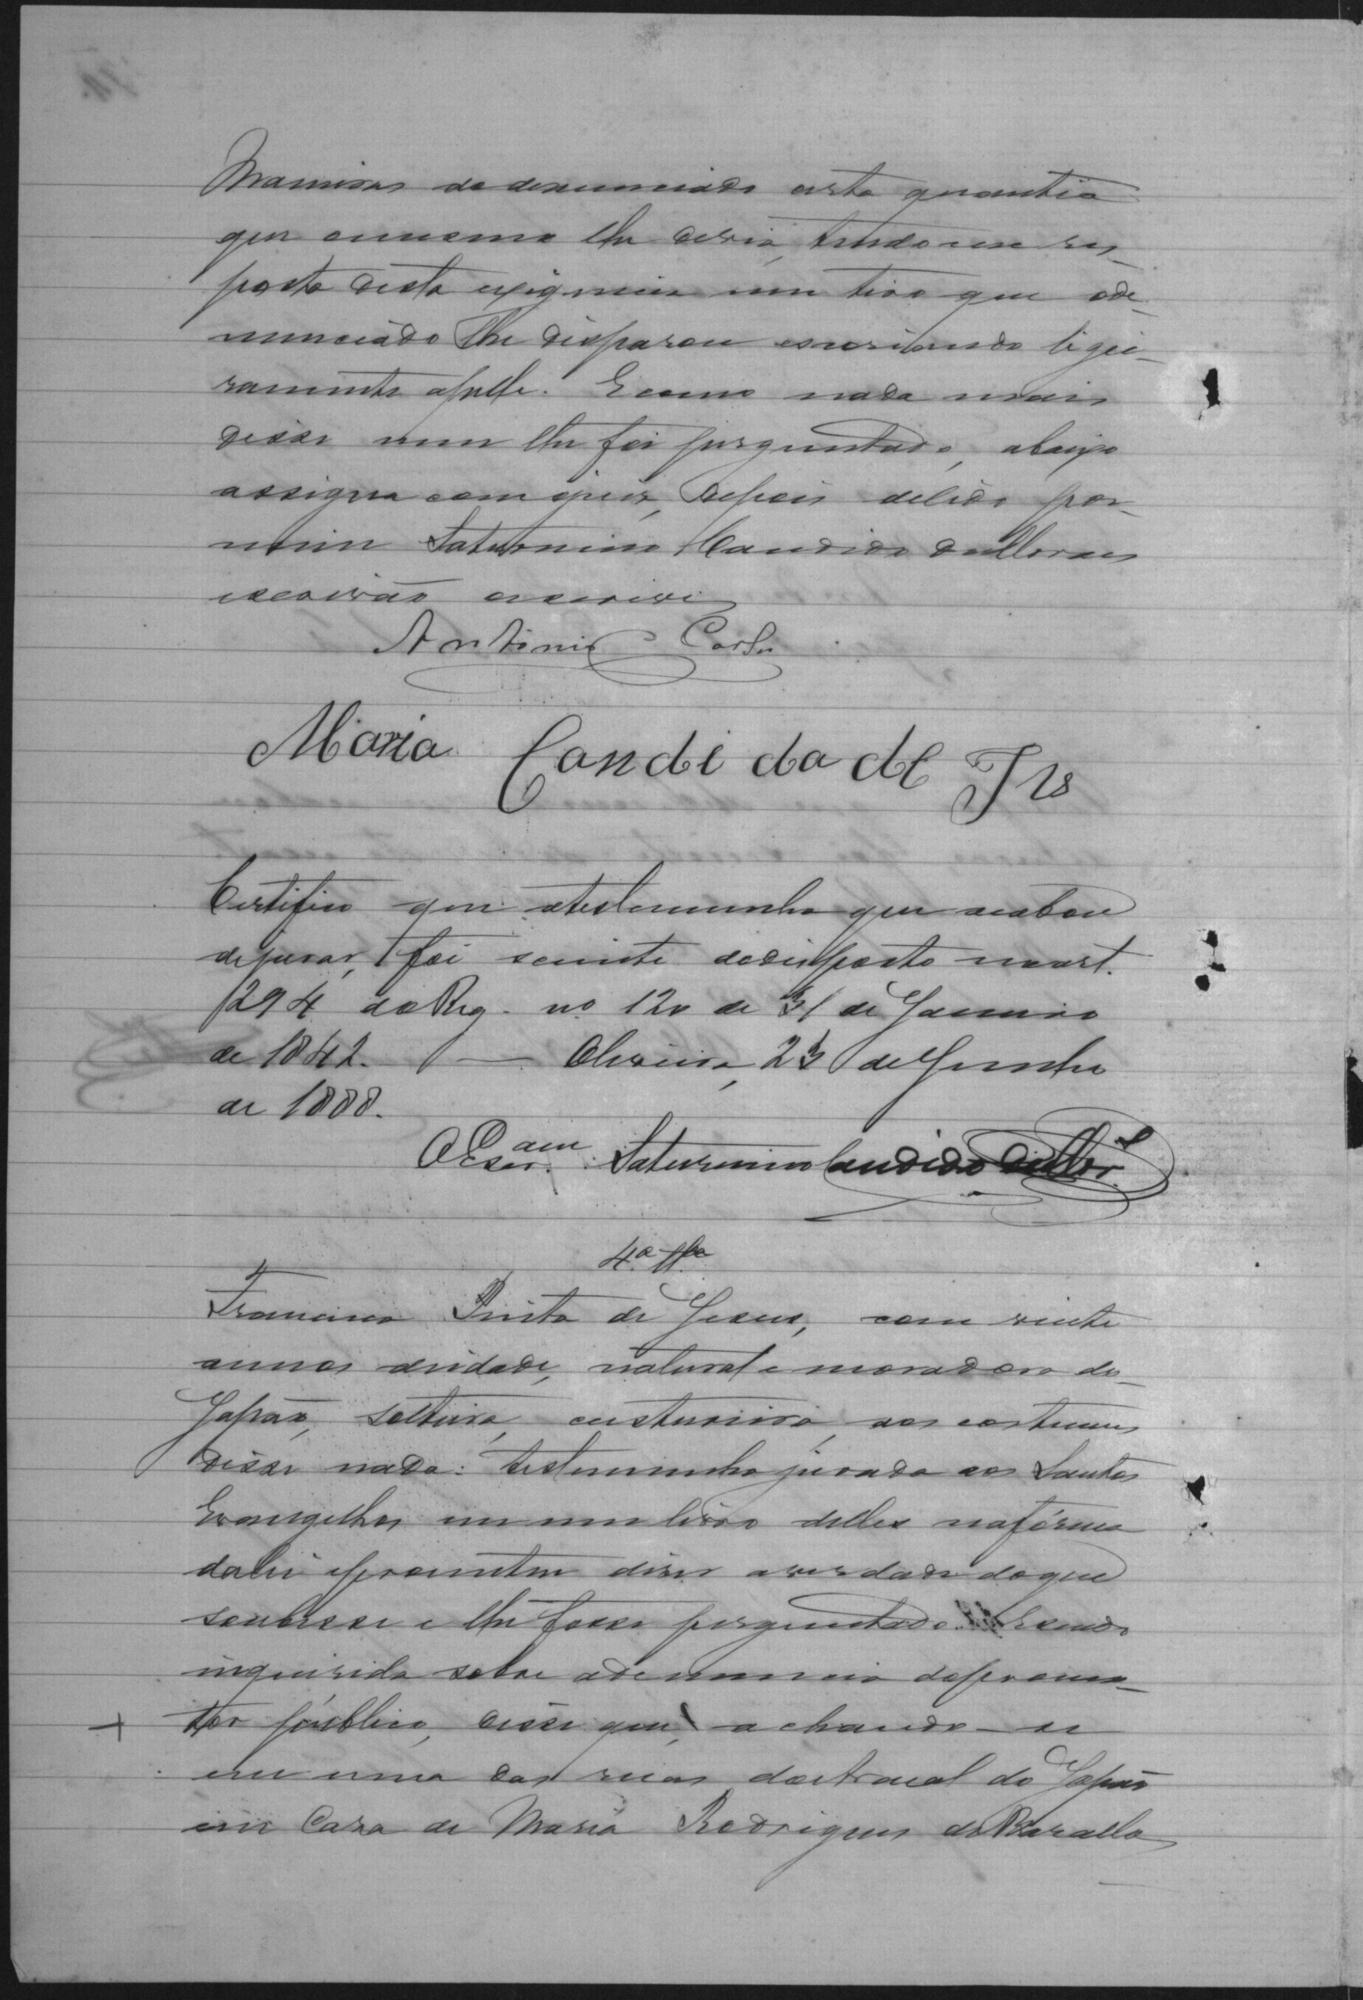 do denunciado esta quantia
que o mesmo lhe devia, tendo em res-
posta desta exigencia um tiro que o de-
nunciado lhe disparou escoriando ligei-
ramente a pelle. E como nada mais
disse nem lhe foi perguntado, abaixo
assigna com o juiz, depois de lido por
mim Saturnino Candido de Moraes
escrivão o escrevi
Antonio
Maria Candida de Js
Certifico que a testemunha que acabou
de jurar, foi sciente do disposto no art.
294 do Reg. nº 120 de 31 de Janeiro
de 1842. — Oliveira, 23 de Junho
de 1888.
O Escr.am Saturnino Candido de
4.a tta
Francisca Pinta de Jesus, com vinte
annos de idade, natural e moradora do
Japão, solteira, costureira, aos costumes
disse nada: testemunha jurada aos Santos
Evangelhos em um livro delles na fórma
da lei e prometteu dizer a verdade do que
soubesse e lhe fosse perguntado. E sendo
inquirida sobre a denuncia do promo-
tor publico, disse que, achando-se
em uma das ruas do arraial do Japão
em casa de Maria Rodrigues de